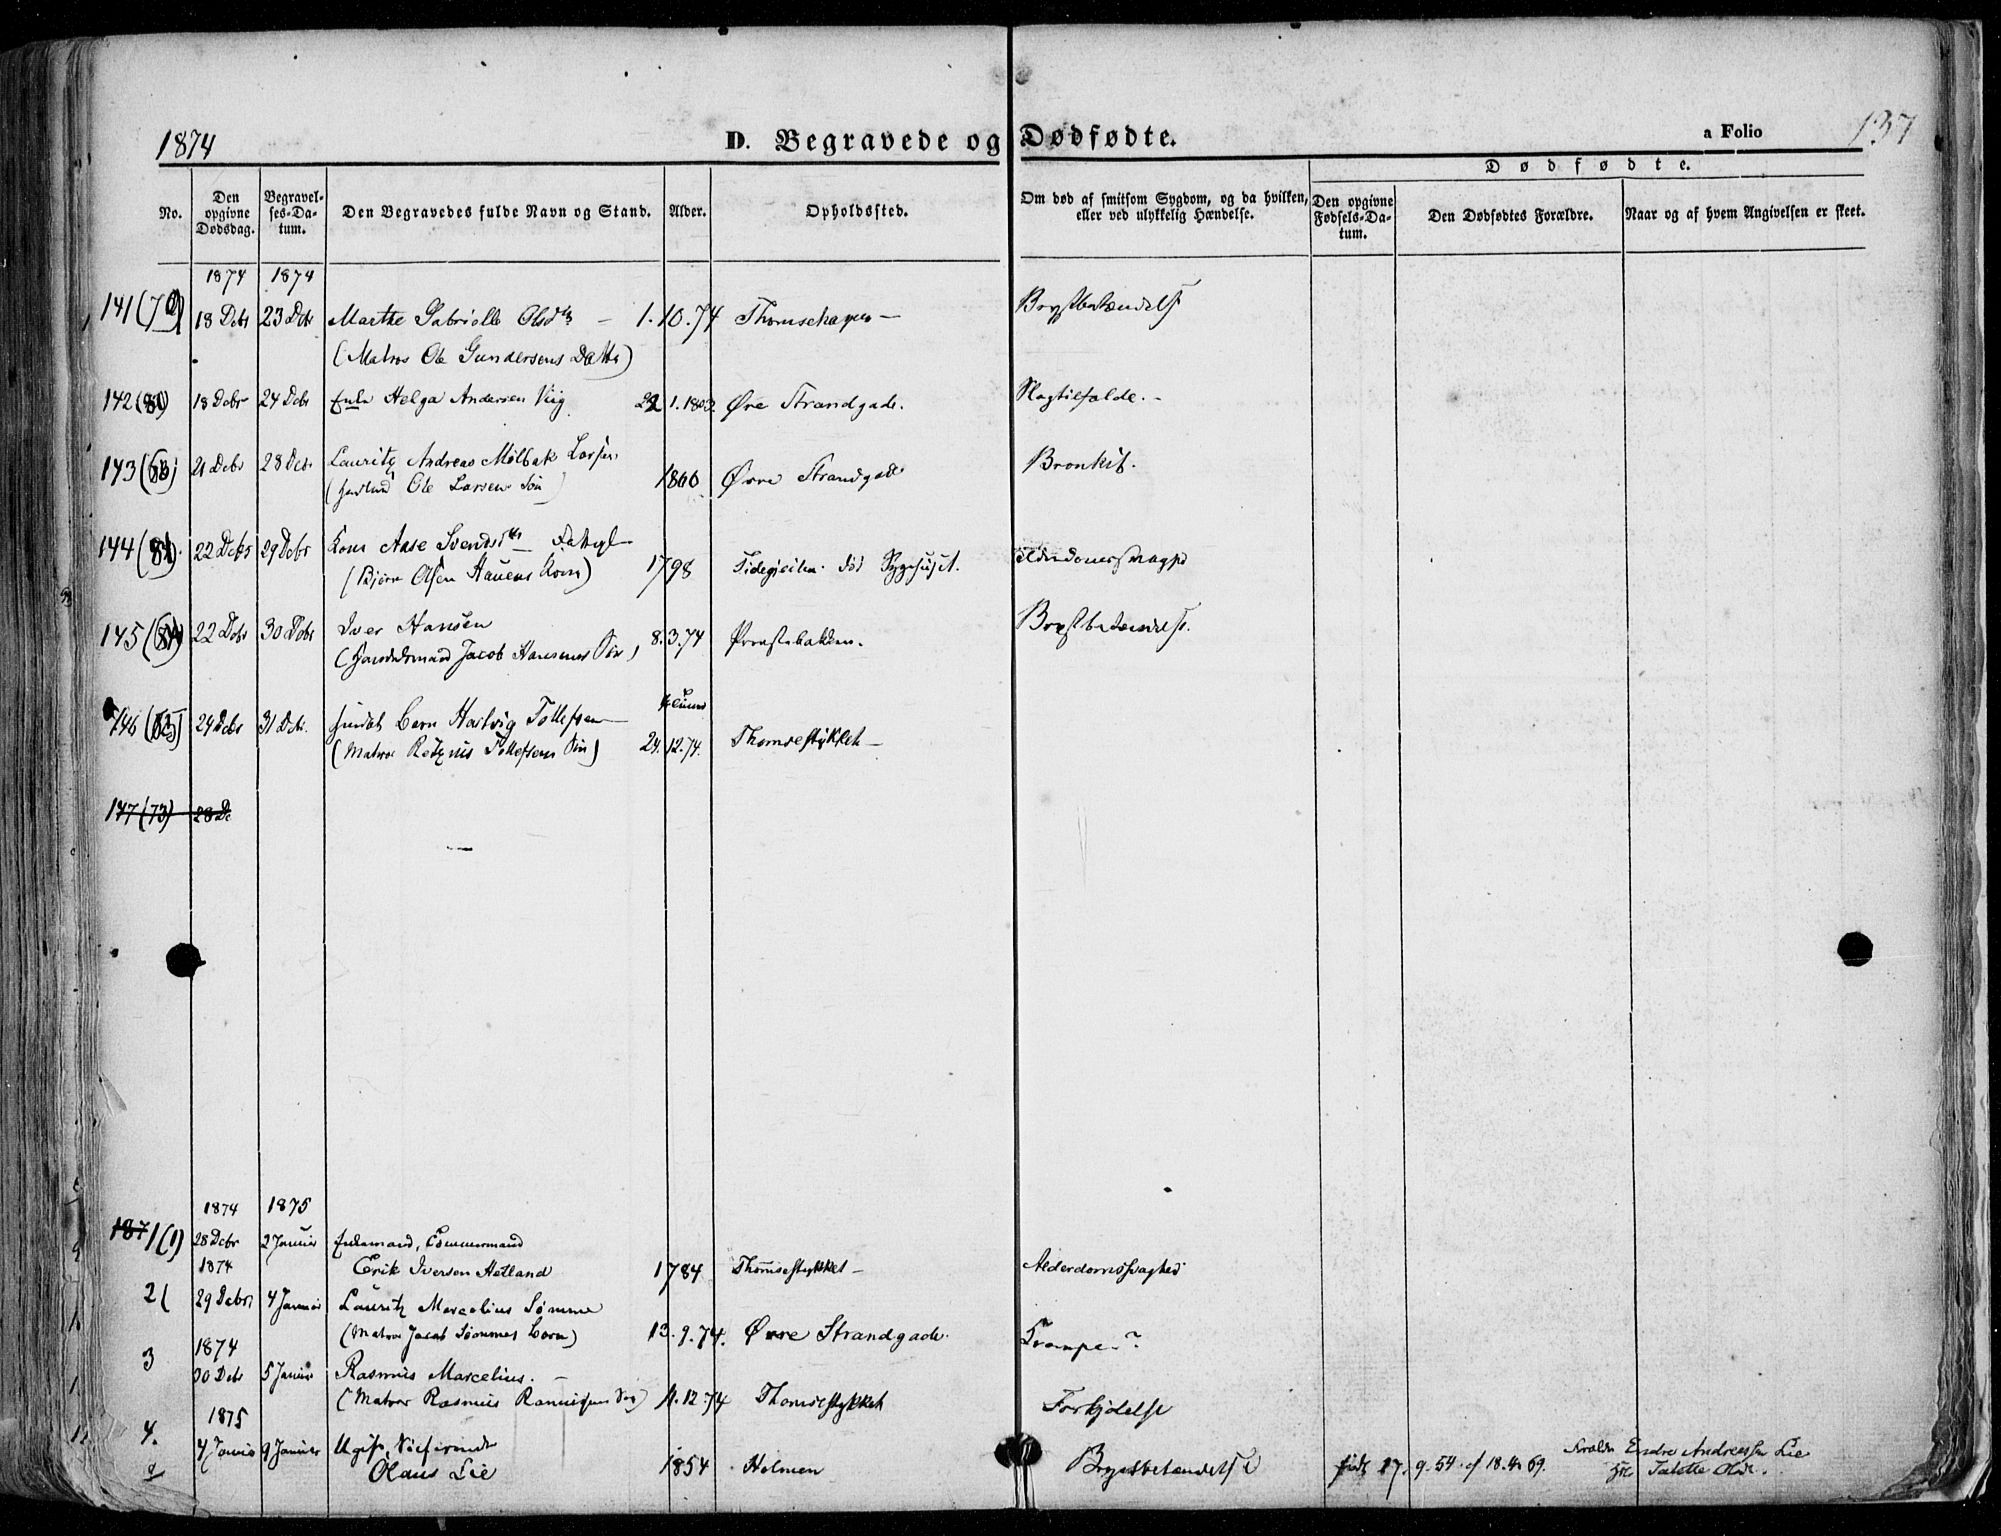 1874
D. Begravede og Dødfødte.
a Folio
137
No.
Den opgivne Dødsdag.
Begravelses-Datum.
Den Begravedes fulde Navn og Stand.
Alder.
Opholdssted.
Om død af smitsom Sygdom, og da hvilken, eller ved ulykkelig Hændelse.
Dødfødte.
Den opgivne Fødsels-Datum.
Den Dødfødtes Forældre.
Naar og af hvem Angivelsen er skeet.
1874 1874
141 18 Debr 23 Debr Marthe Gabrielle Olsdtr 1.10.74 Brystbetændelse
(Matros Ole Gundersens Datter)
142 18 Debr 24 Debr Enke Helga Andersen Viig 1.1803. Øvre Strandgade. Slagtilfælde.
143 21 Debr 28 Debr Lauritz Andreas Mølbak Larsen 1866 Øvre Strandgade Bronkit.
Ole Larsens Søn)
144 22 Debr 29 Debr Kone Aase Svendsdtr Fattigl 1798 Sygehuset. Alderdomssvaghed
(Bjørn Olsen Hauens Kone)
145 22 Debr 30 Debr Iver Hansen 8.3.74 Provstebakken. Brystbetændelse.
Jacob Hansens Søn)
146 24 Debr 31 Debr Barn Hartvig Tollefsen 24.12.74. Thomsestykket
(Matros Tollefsens Søn)
147 (73) 28 De
1874 1875
1 (1) 28 Debr 2 Januar Enkemand, Tømmermand
Erik Iversen Hetland 1784 Thomsestykket Alderdomssvaghed
1874
2 29 Debr 4 Januar Lauritz Marcelius Sømme
(Matros Jacob Sømmes Barn) 13.9.74. Øvre Strandgade. Krampe
1874
3 30 Debr 5 Januar Rasmus Marcelius.
(Matros Rasmus Rasmussens Søn) 11.12.74 Thomsestykket Forkjølelse
1875
4. 4 Januar 9 Januar Ugift, Søfarende
Olaus Lie 1854 Holmen Brystbetændelse født 17.9.54. Endre Andreassen Lie
Olsdtr.